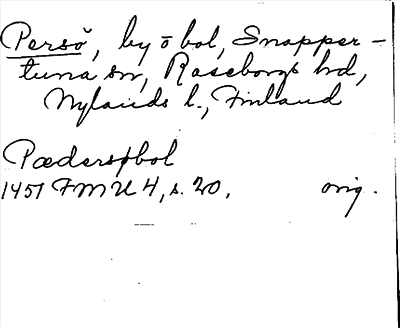 Persö, by o bol, Snapper-
tuna sn, Raseborgs hd,
Nylands l., Finland
Pædersøbol
1451 FMU 4, s. 20, orig.